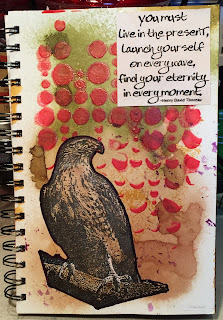 you must
live in the present,
launch yourself
on every wave,
find your eternity
in every moment.
-Henry David Thoreau